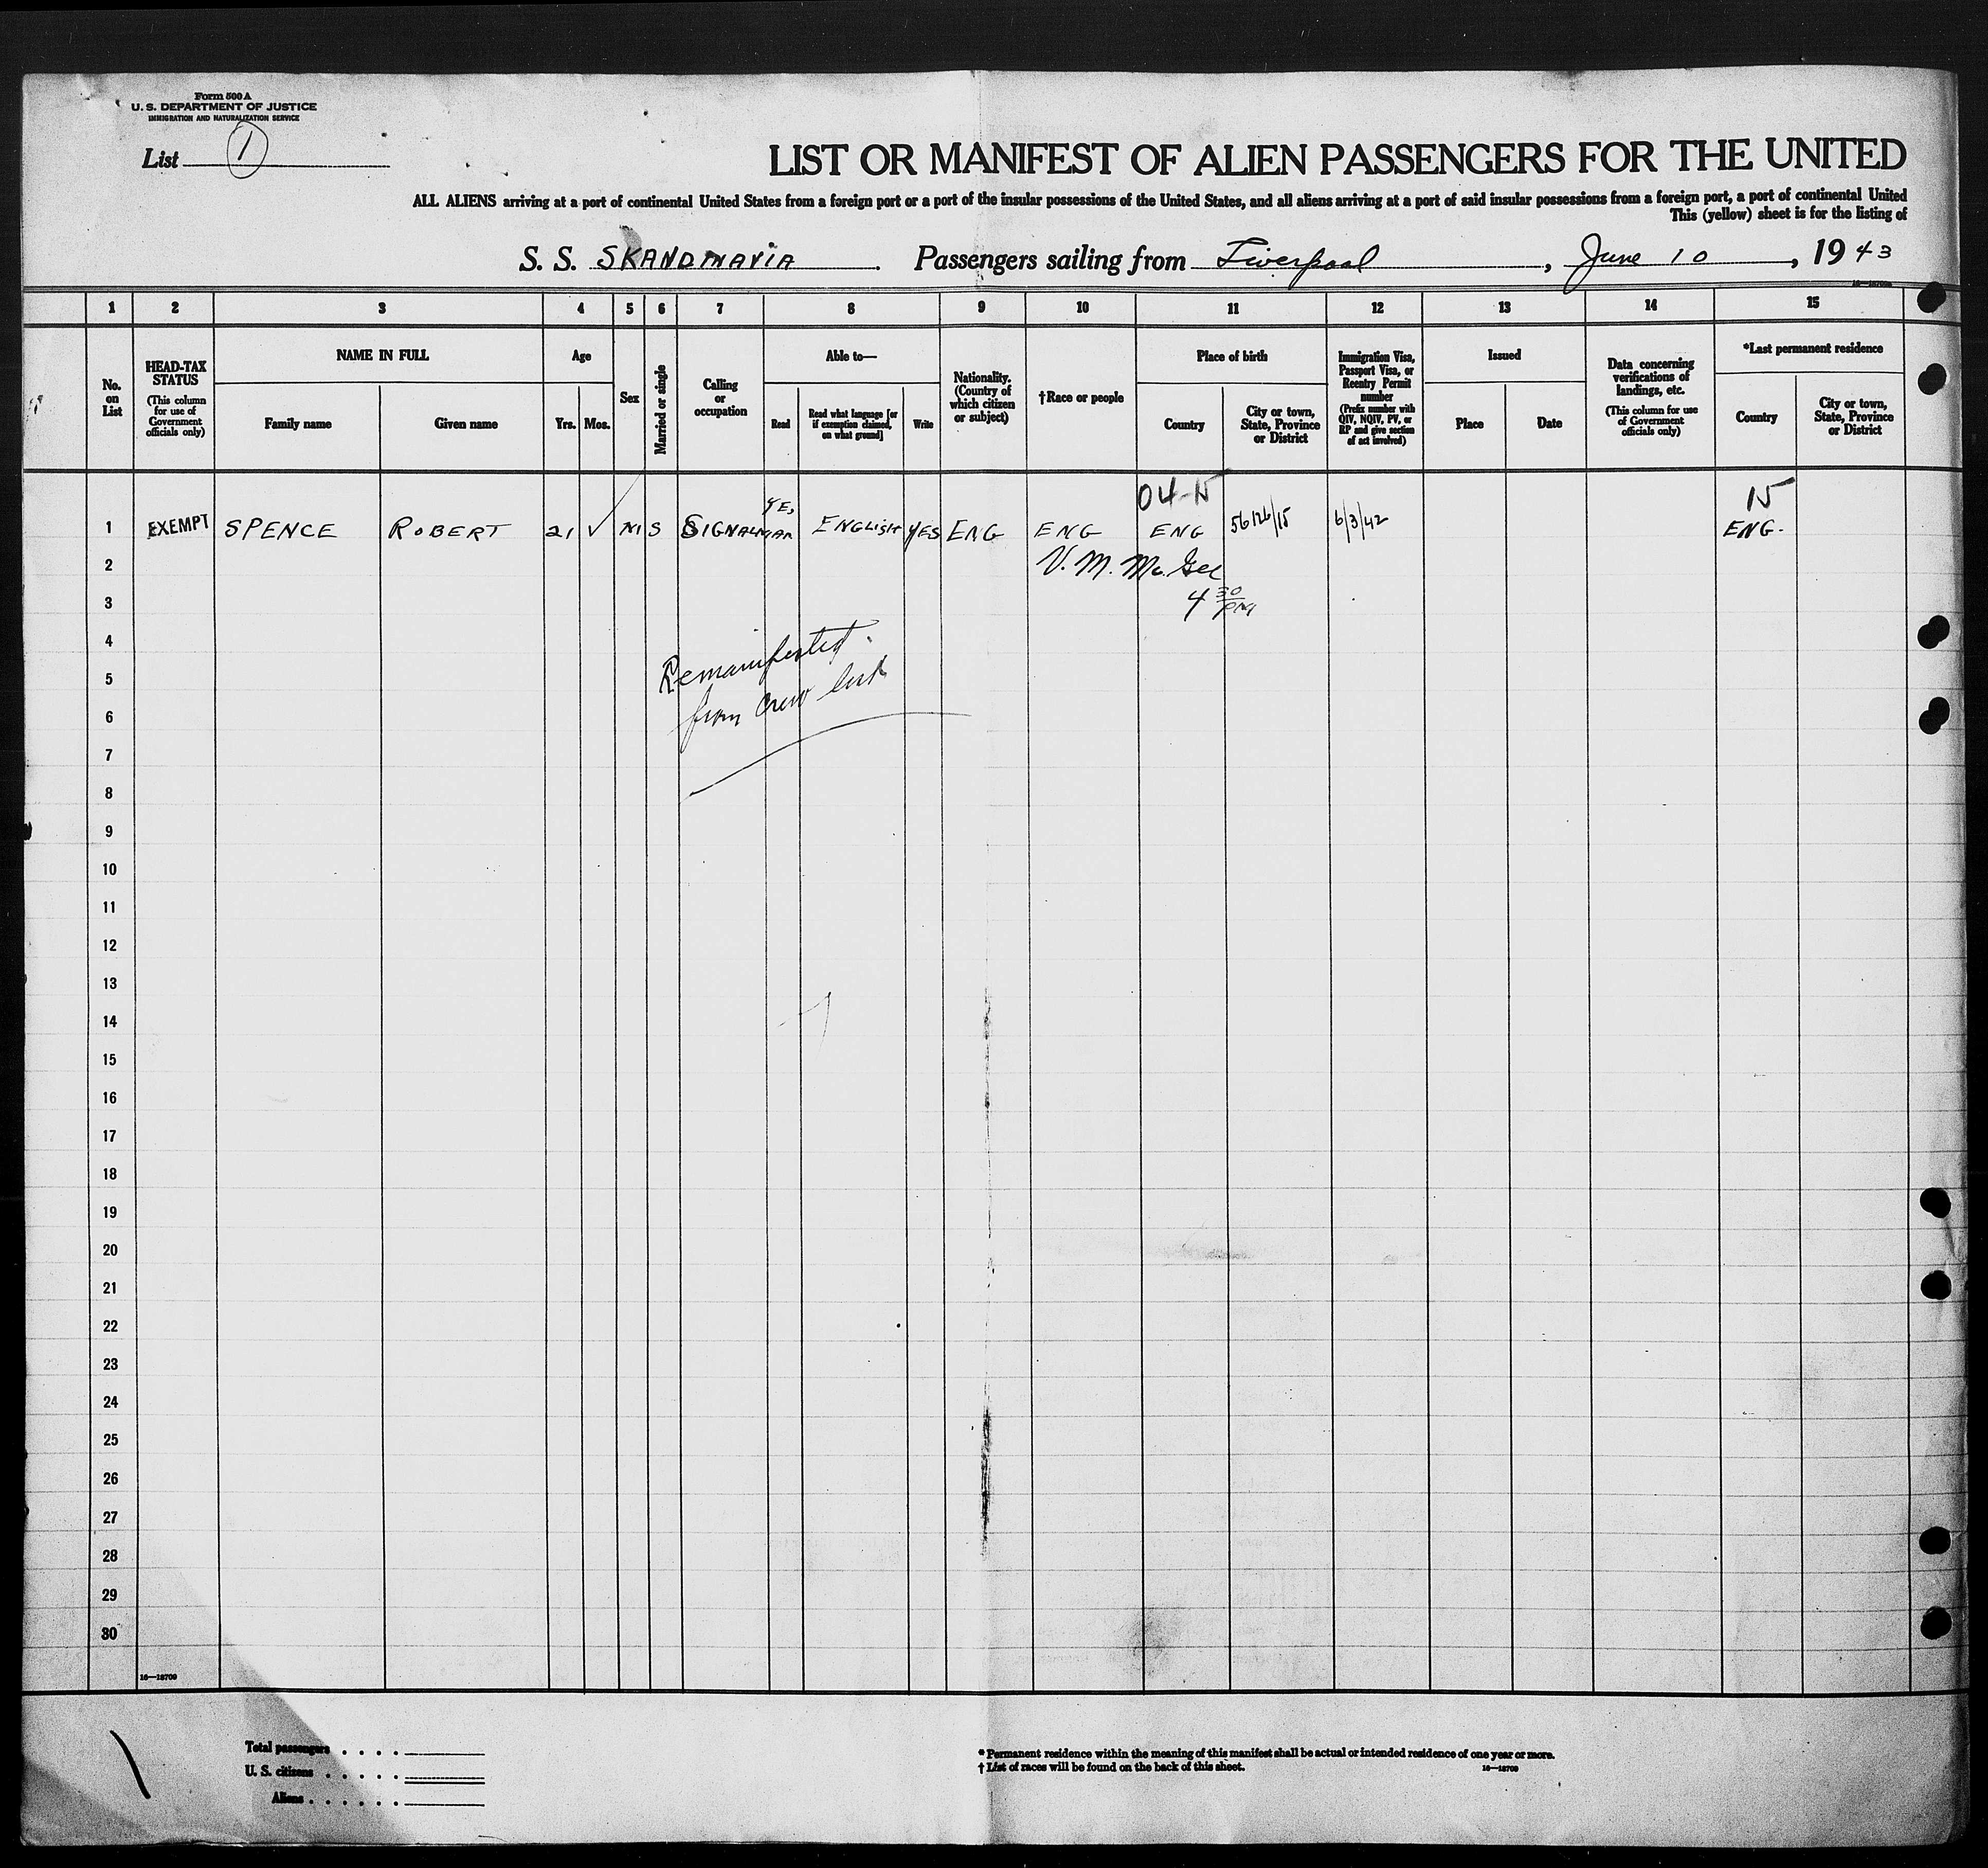 Form 500 A
U. S. DEPARTMENT OF JUSTICE
IMMIGRATION AND NATURALIZATION SERVICE
List 1
LIST OR MANIFEST OF ALIEN PASSENGERS FOR THE UNITED
ALL ALIENS arriving at a port of continental United States from a foreign port or a port of the insular possessions of the United States, and all aliens arriving at a port of said insular possessions from a foreign port, a port of continental United
This (yellow) sheet is for the listing of
S. S. SKANDINAVIA. Passengers sailing from Liverpool, June 10, 1943
1 2 3 4 5 6 7 8 9 10 11 12 13 14 15
No. on List
HEAD-TAX STATUS
(This column for use of Government officials only)
NAME IN FULL
Family name
Given name
Age
Yrs.
Mos.
Sex
Married or single
Calling or occupation
Able to—
Read
Read what language [or if exemption claimed, on what ground]
Write
Nationality. (Country of which citizen or subject)
†Race or people
Place of birth
Country
City or town, State, Province or District
Immigration Visa, Passport Visa, or Reentry Permit number
(Prefix number with QIV, NQIV, PV, or RP and give section of act involved)
Issued
Place
Date
Data concerning verifications of landings, etc.
(This column for use of Government officials only)
*Last permanent residence
Country
City or town, State, Province or District
04-15
15
1 EXEMPT SPENCE ROBERT 21 ✓ M S SIGNALMAN YES ENGLISH YES ENG ENG ENG 56126/15 6/3/42 ENG.
2 V. M. McGee
3 4 30 PM
4 Remanifested
5 from crew list
6
7
8
9
10
11
12
13
14
15
16
17
18
19
20
21
22
23
24
25
26
27
28
29
30
16—18709
Total passengers . . . .
U. S. citizens . . . . .
Aliens . . . . . .
* Permanent residence within the meaning of this manifest shall be actual or intended residence of one year or more.
† List of races will be found on the back of this sheet.
16—18709